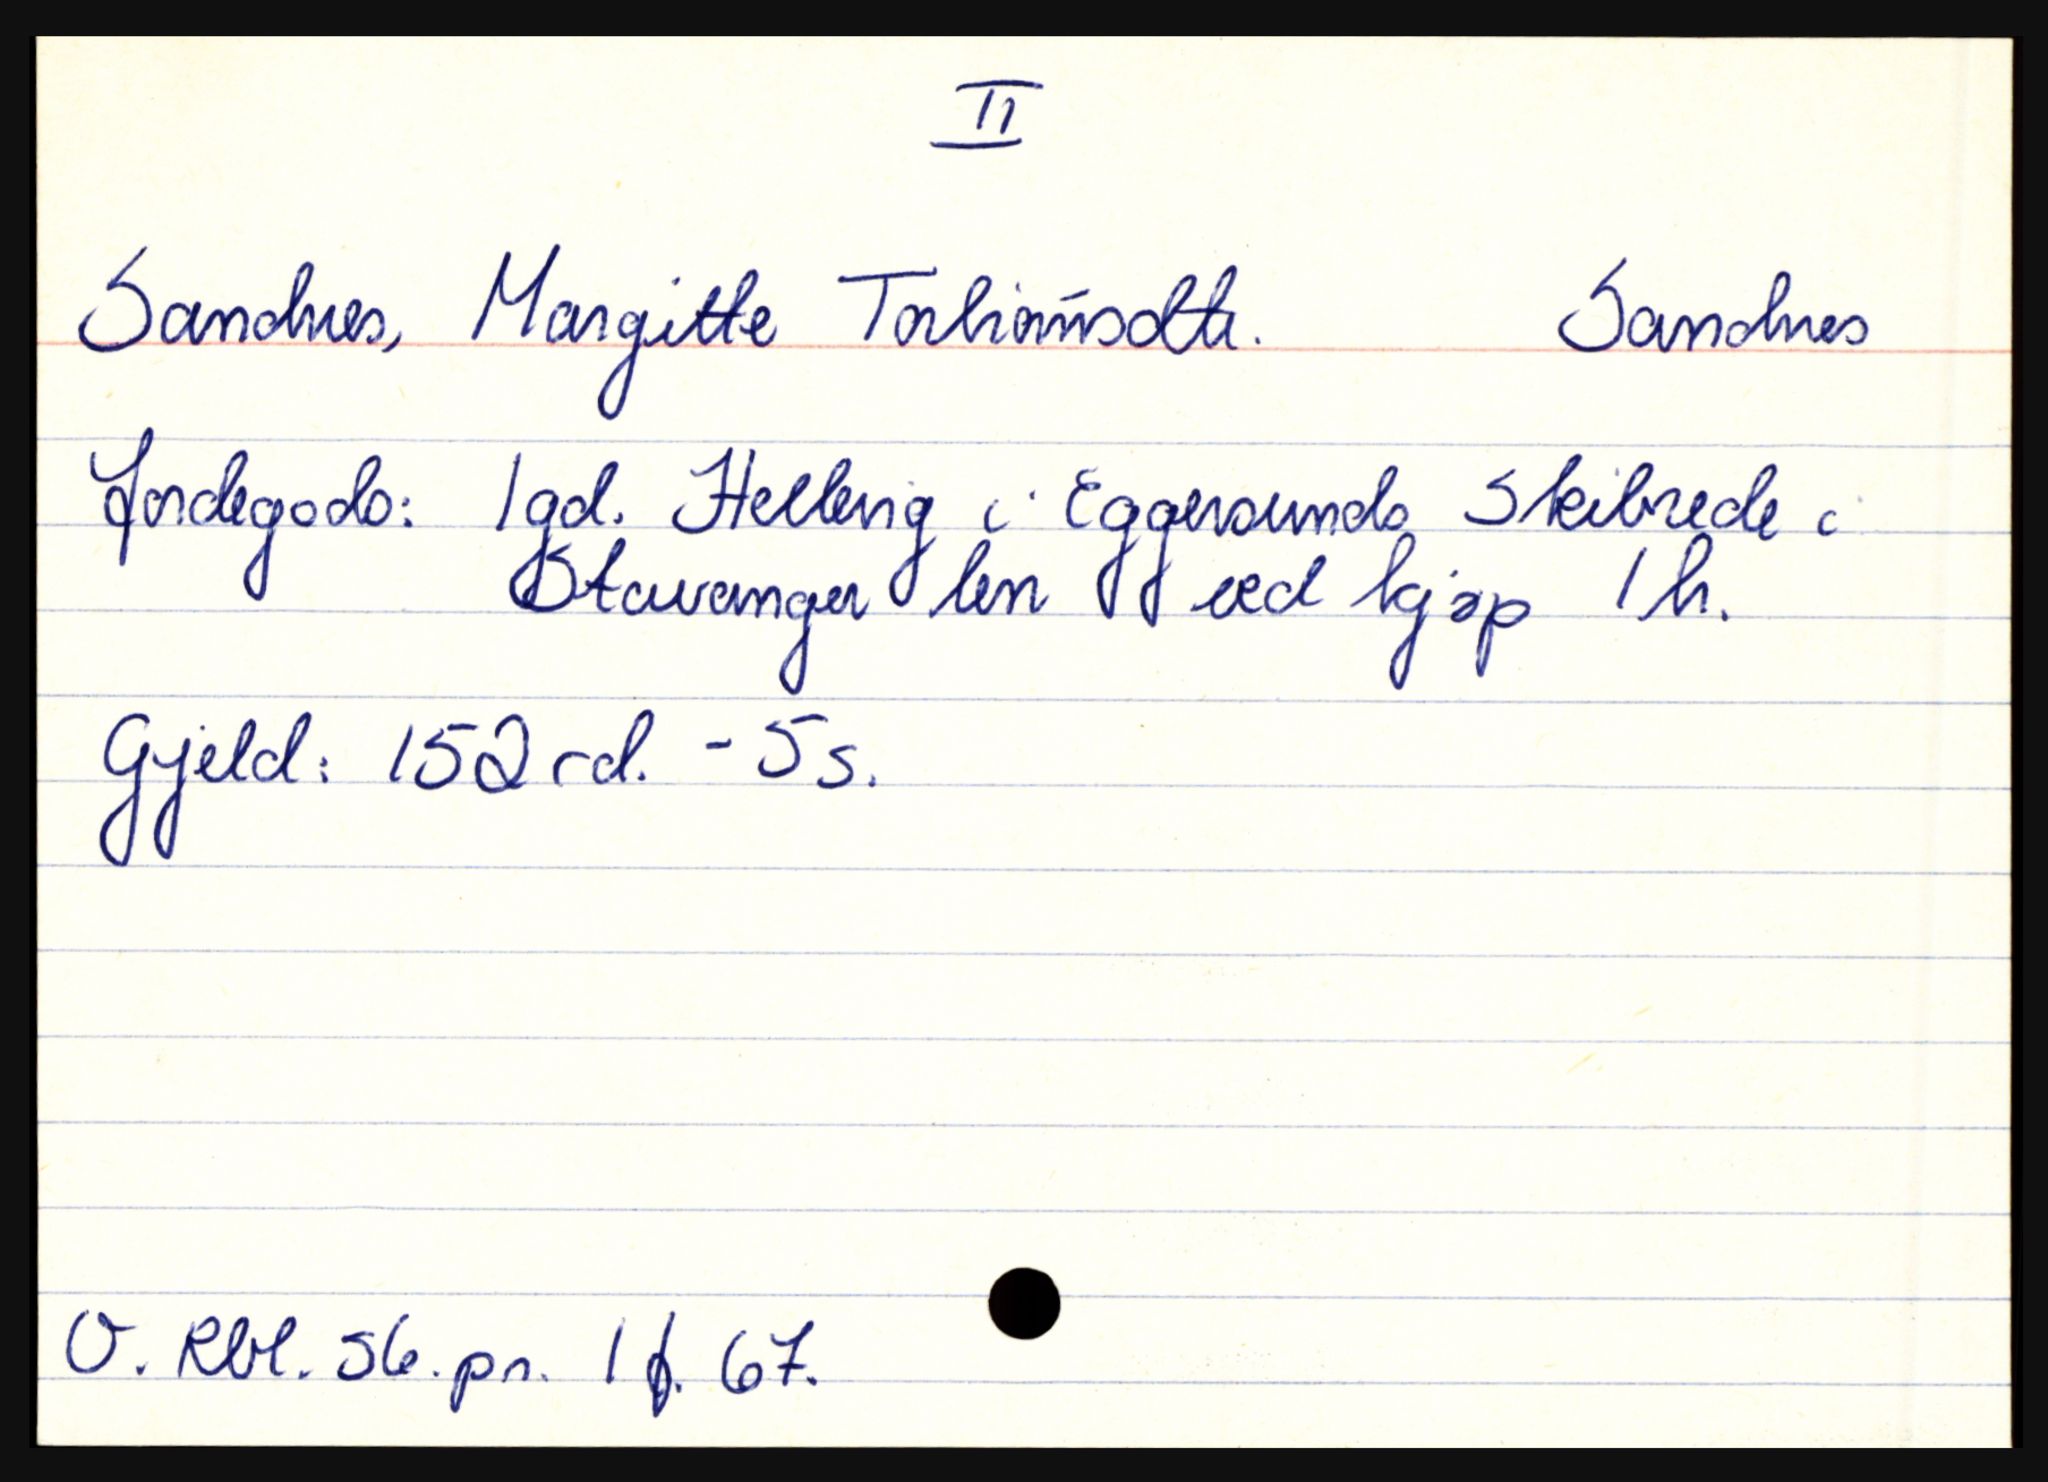 II
Sandnes, Margitte Torbiørnsdtr. Sandnes
Jordegods: 1 gd. Hellevig i Eggersunds Skibrede i
Stavanger len ved kjøp 1 h.
Gjeld: 152 rd. - 5 s.
V. Rbl. 56. pr. 1 f. 67.